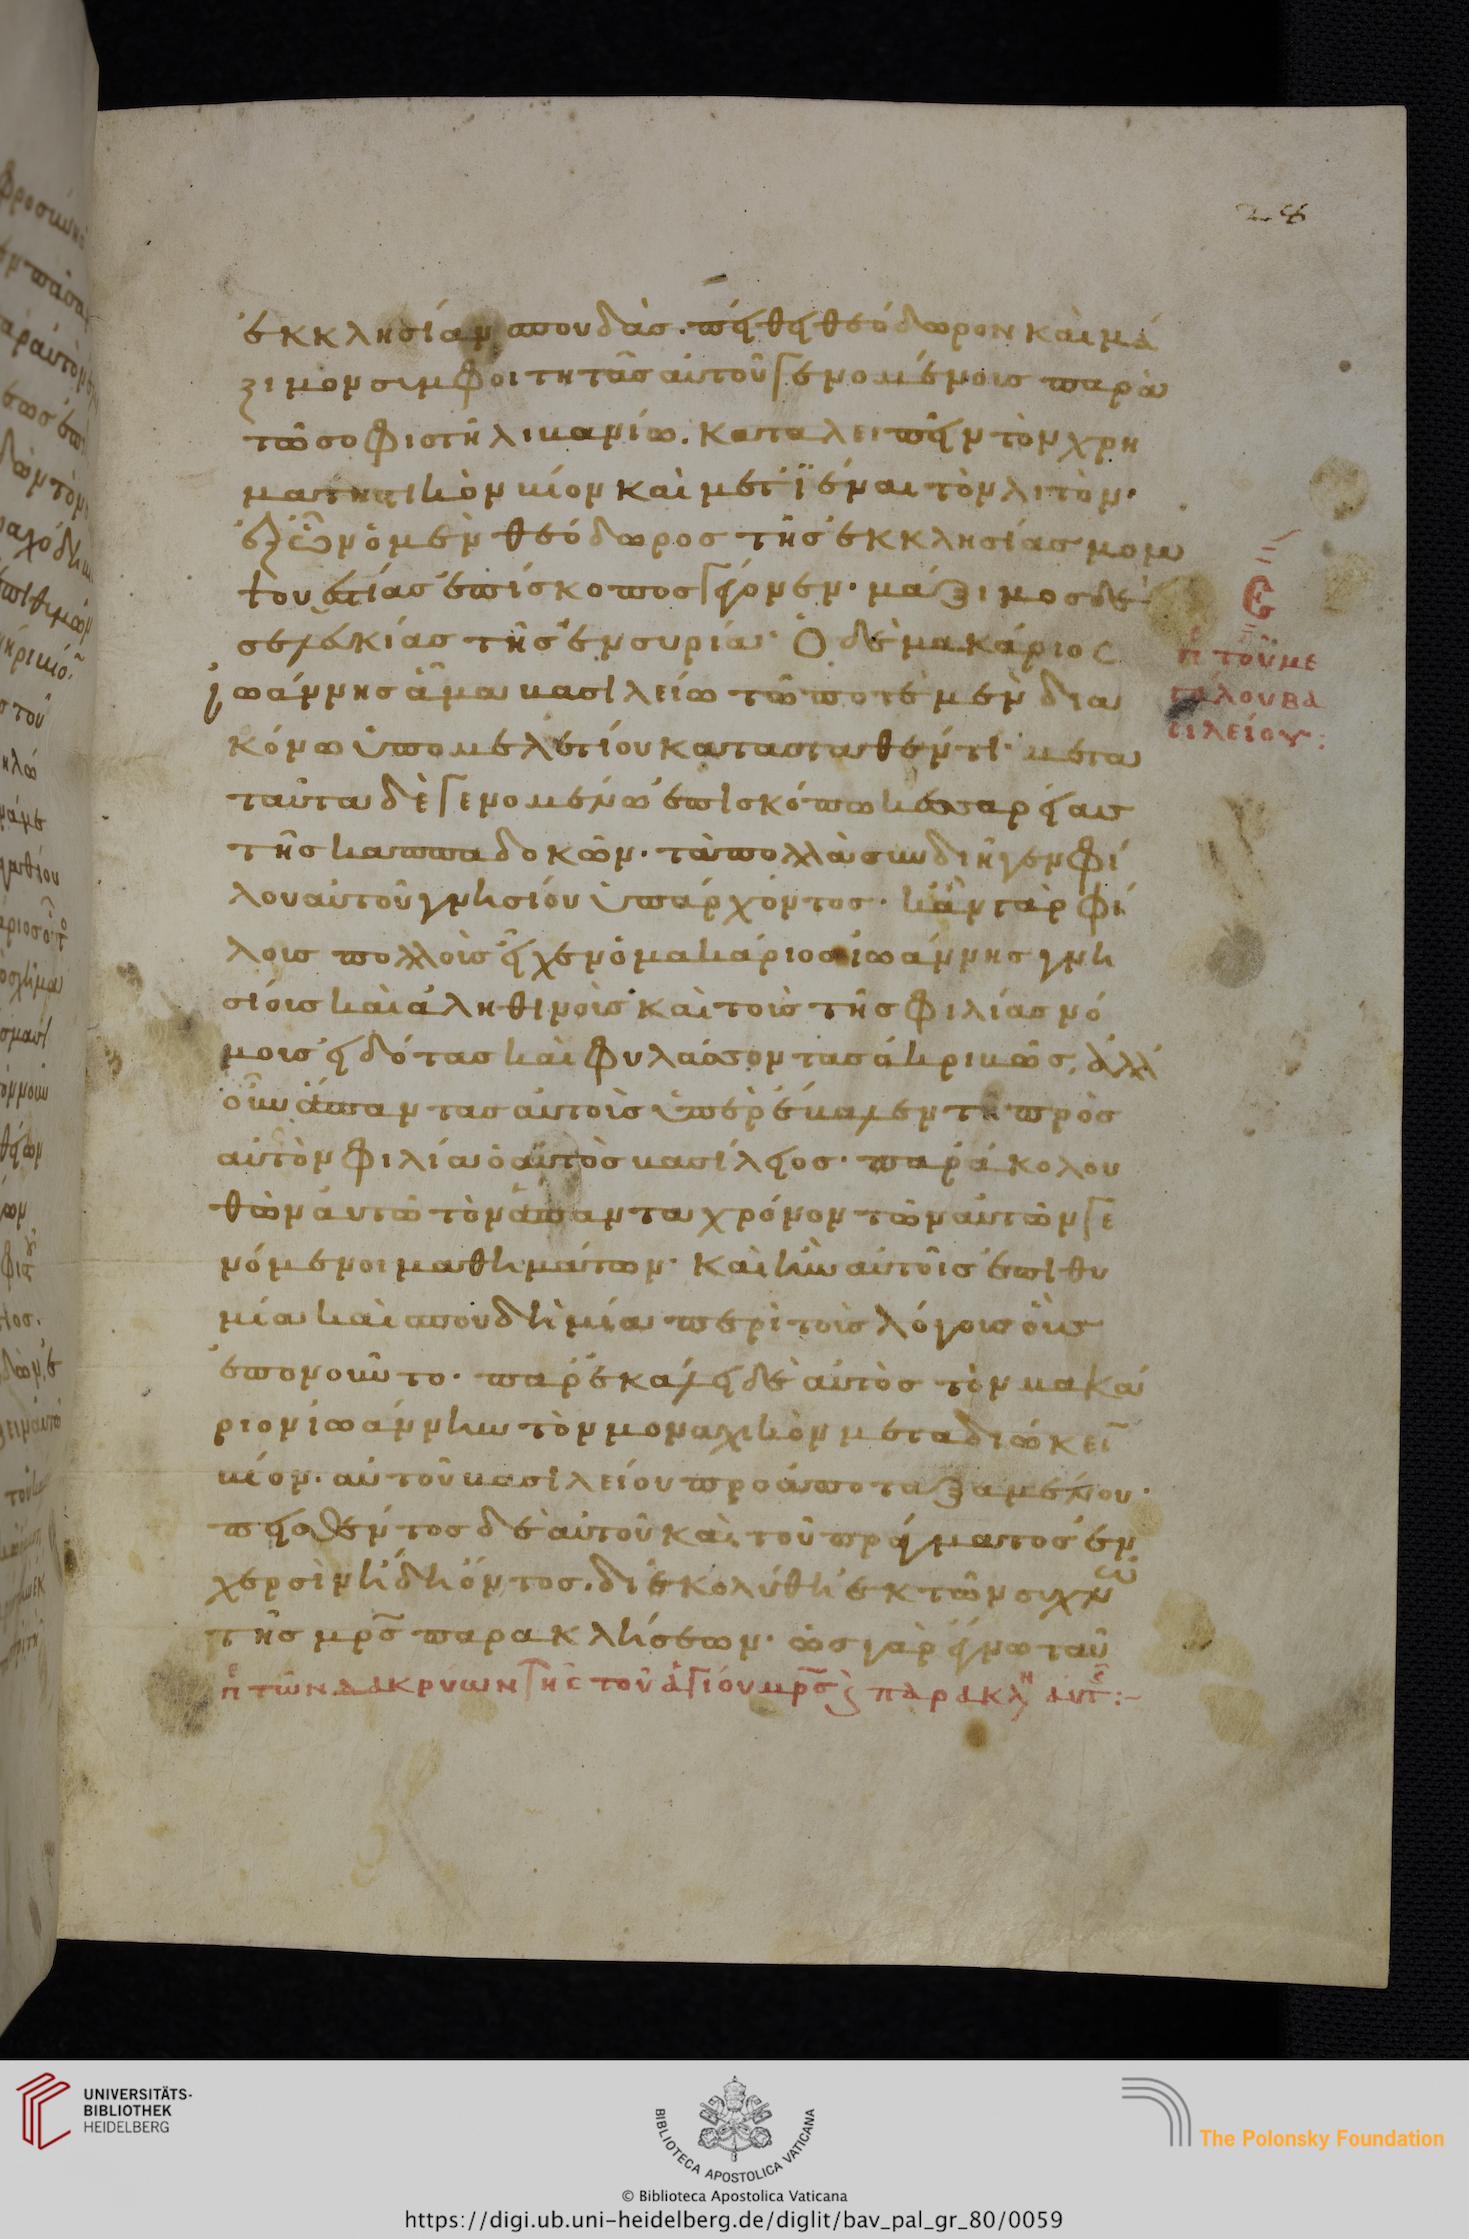 28
ἐκκλησίαν σπουδὰσ. πείθει θεόδωρον καὶ μά
ξιμον σιμφοιτητὰσ αὐτοῦ γενομένοισ παρὰ
τῶ σοφιστῆ λιβανίω. καταλειπεῖν τὸν χρη
ματηστικὸν βίον καὶ μετϊέναι τὸν λιτὸν.
ἐξ ὧν ὁ μὲν θεόδωροσ τῆσ ἐκκλησίασ μομψ
του εστίασ ἐπίσκοποσ γέγονεν. μάξιμοσ δὲ
σελευκίασ τῆσ ἐν συρία. Ὁ δὲ μακάριοσ
ἰωάννησ ἅμα βασιλείω τῶ ποτὲ μὲν δια
κόνω ὑπο μελετίου κατασταθέντι. μετα
ταῦτα δὲ γενομένω ἐπισκόπω κεσαρείασ
τῆσ καππαδοκῶν. τὰ πολλὰ συνδιῆγεν φί
λου αὐτοῦ γνησίου ὑπάρχοντοσ. κἂν γὰρ φί
λοισ πολλοὶσ εἶχεν ὁ μακάριοσ ἰωάννησ γνη
σίοισ καὶ ἀληθινοὶσ καὶ τοὶσ τῆσ φιλίασ νό
μοισ εἰδότασ καὶ φυλάσσοντασ ἀκριβῶσ, ἀλλ'
οὖν ἅπαντασ αὐτοὶσ ὑπερέβαλεν τῆ πρὸσ
αὐτὸν φιλία ὁ αὐτὸσ βασίλειοσ. παράκολου
θῶν ἀυτῶ τὸν ἅπαντα χρόνον τῶν αὐτῶν γε
νόμενοι μαθημάτων. καὶ ἦν αὐτοῖσ ἐπιθυ
μία καὶ σπουδὴ μία περὶ τοὶσ λόγοισ οὓσ
ἐπονοῦντο. παρέκαλει δὲ αὐτὸσ τὸν μακά
ριον ἰωάννην τὸν μοναχικὸν μεταδιώκειν
βίον. αὐτοῦ βασιλείου προάποταξαμένου.
πεισθέντοσ δὲ αὐτοῦ καὶ τοῦ πράγματοσ ἐν
χερσὶν ἤδη ὄντοσ. διεκολύθη ἐκ τῶν συχνῶν
τῆσ μρσ παρακλήσεων. ὡσ γὰρ ἔγνω ταῦ
π τῶν δακρύων τησ τοῦ ἁγίου μρσ ϗ παρακλη αυτ :-
Ϛ
π τοῦ με
γάλου βα
σιλείου :
UNIVERSITÄTS-
BIBLIOTHEK
HEIDELBERG
BIBLIOTECA APOSTOLICA VATICANA
The Polonsky Foundation
© Biblioteca Apostolica Vaticana
https://digi.ub.uni-heidelberg.de/diglit/bav_pal_gr_80/0059